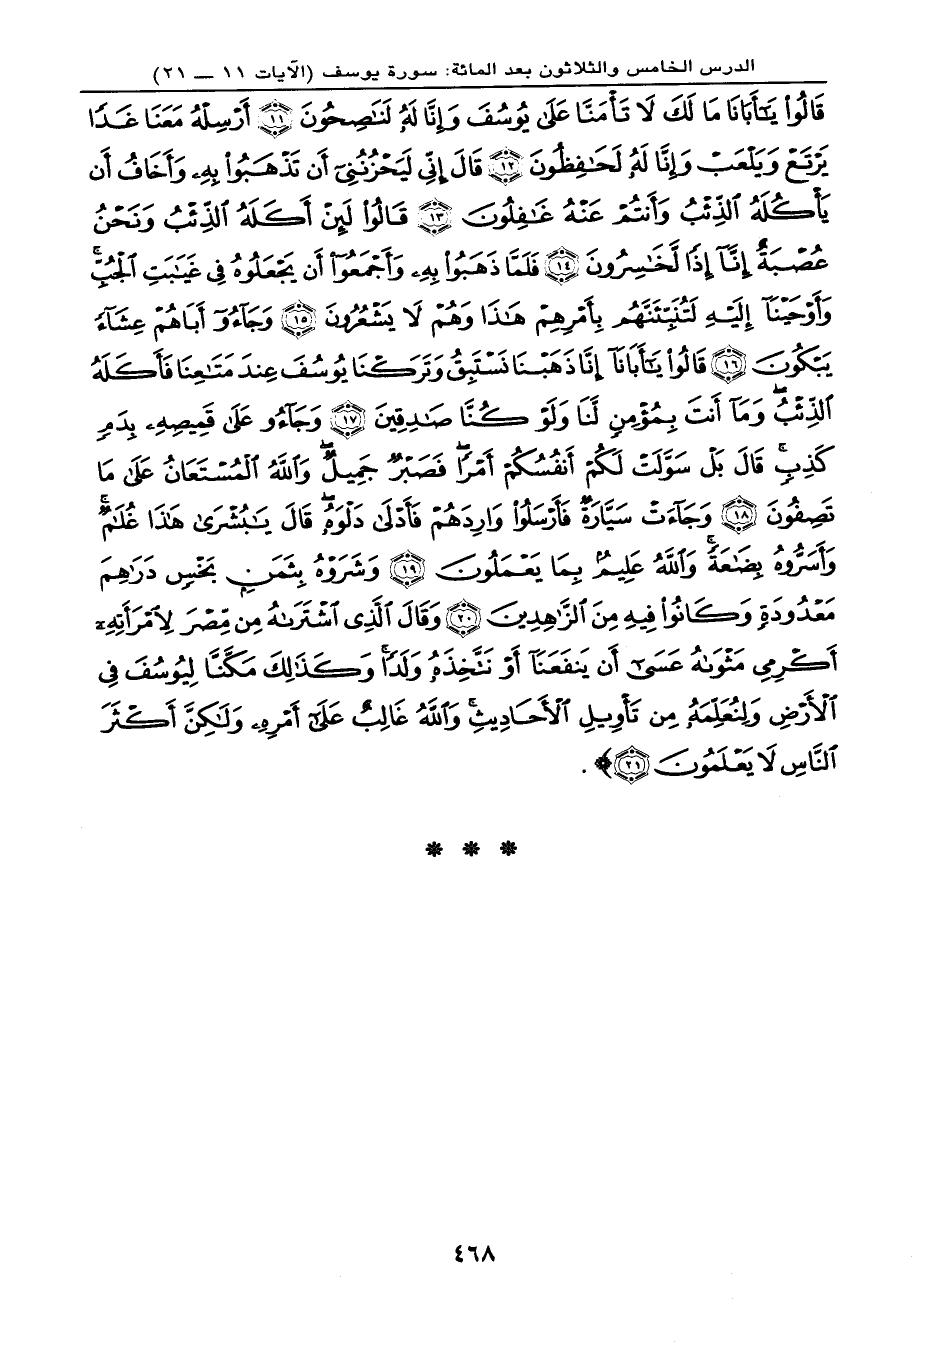 الدرس الخامس والثلاثون بعد المائة: سورة يوسف (الآيات ١١ — ٢١)
قَالُوا۟ يَـٰٓأَبَانَا مَا لَكَ لَا تَأْمَ۬نَّا عَلَىٰ يُوسُفَ وَإِنَّا لَهُۥ لَنَـٰصِحُونَ ﴿١١﴾ أَرْسِلْهُ مَعَنَا غَدًا
يَرْتَعْ وَيَلْعَبْ وَإِنَّا لَهُۥ لَحَـٰفِظُونَ ﴿١٢﴾ قَالَ إِنِّى لَيَحْزُنُنِىٓ أَن تَذْهَبُوا۟ بِهِۦ وَأَخَافُ أَن
يَأْكُلَهُ ٱلذِّئْبُ وَأَنتُمْ عَنْهُ غَـٰفِلُونَ ﴿١٣﴾ قَالُوا۟ لَئِنْ أَكَلَهُ ٱلذِّئْبُ وَنَحْنُ
عُصْبَةٌ إِنَّآ إِذًا لَّخَـٰسِرُونَ ﴿١٤﴾ فَلَمَّا ذَهَبُوا۟ بِهِۦ وَأَجْمَعُوٓا۟ أَن يَجْعَلُوهُ فِى غَيَـٰبَتِ ٱلْجُبِّ ۚ
وَأَوْحَيْنَآ إِلَيْهِ لَتُنَبِّئَنَّهُم بِأَمْرِهِمْ هَـٰذَا وَهُمْ لَا يَشْعُرُونَ ﴿١٥﴾ وَجَآءُوٓ أَبَاهُمْ عِشَآءً
يَبْكُونَ ﴿١٦﴾ قَالُوا۟ يَـٰٓأَبَانَآ إِنَّا ذَهَبْنَا نَسْتَبِقُ وَتَرَكْنَا يُوسُفَ عِندَ مَتَـٰعِنَا فَأَكَلَهُ
ٱلذِّئْبُ ۖ وَمَآ أَنتَ بِمُؤْمِنٍ لَّنَا وَلَوْ كُنَّا صَـٰدِقِينَ ﴿١٧﴾ وَجَآءُو عَلَىٰ قَمِيصِهِۦ بِدَمٍ
كَذِبٍ ۚ قَالَ بَلْ سَوَّلَتْ لَكُمْ أَنفُسُكُمْ أَمْرًا ۖ فَصَبْرٌ جَمِيلٌ ۖ وَٱللَّهُ ٱلْمُسْتَعَانُ عَلَىٰ مَا
تَصِفُونَ ﴿١٨﴾ وَجَآءَتْ سَيَّارَةٌ فَأَرْسَلُوا۟ وَارِدَهُمْ فَأَدْلَىٰ دَلْوَهُۥ ۖ قَالَ يَـٰبُشْرَىٰ هَـٰذَا غُلَـٰمٌ ۚ
وَأَسَرُّوهُ بِضَـٰعَةً ۚ وَٱللَّهُ عَلِيمٌۢ بِمَا يَعْمَلُونَ ﴿١٩﴾ وَشَرَوْهُ بِثَمَنٍۭ بَخْسٍ دَرَٰهِمَ
مَعْدُودَةٍ وَكَانُوا۟ فِيهِ مِنَ ٱلزَّٰهِدِينَ ﴿٢٠﴾ وَقَالَ ٱلَّذِى ٱشْتَرَىٰهُ مِن مِّصْرَ لِٱمْرَأَتِهِۦٓ
أَكْرِمِى مَثْوَىٰهُ عَسَىٰٓ أَن يَنفَعَنَآ أَوْ نَتَّخِذَهُۥ وَلَدًا ۚ وَكَذَٰلِكَ مَكَّنَّا لِيُوسُفَ فِى
ٱلْأَرْضِ وَلِنُعَلِّمَهُۥ مِن تَأْوِيلِ ٱلْأَحَادِيثِ ۚ وَٱللَّهُ غَالِبٌ عَلَىٰٓ أَمْرِهِۦ وَلَـٰكِنَّ أَكْثَرَ
ٱلنَّاسِ لَا يَعْلَمُونَ ﴿٢١﴾﴾ .
* * *
٤٦٨